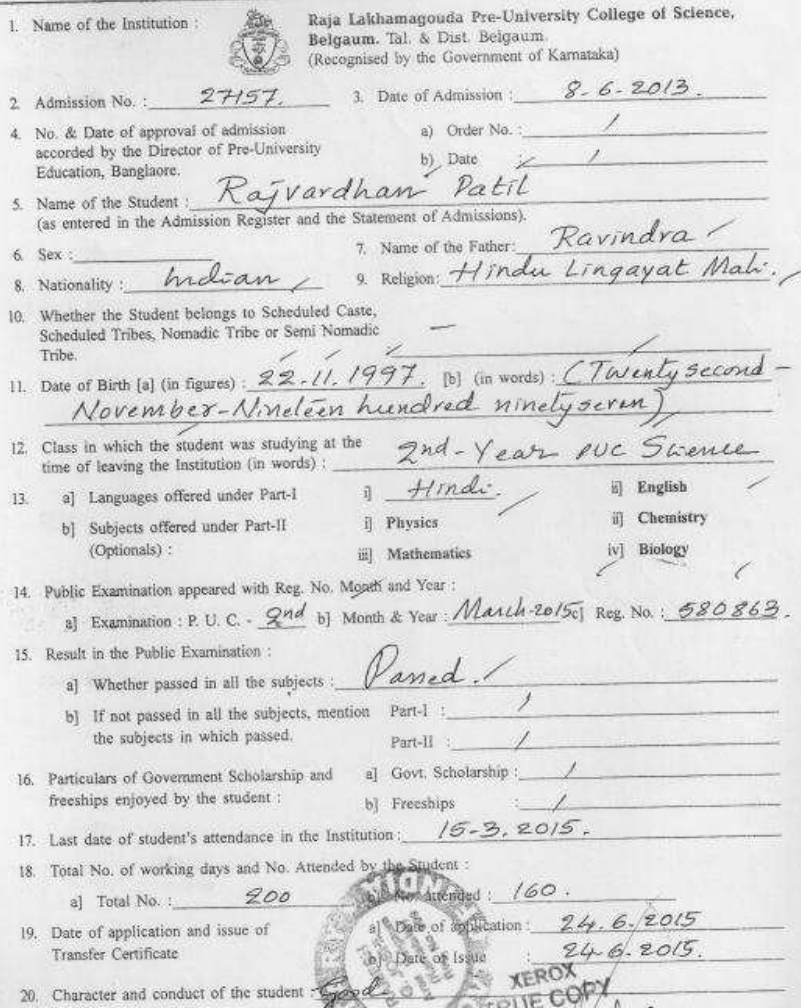 1. Name of the Institution : Raja Lakhamagouda Pre-University College of Science,
Belgaum. Tal. & Dist. Belgaum.
(Recognised by the Government of Karnataka)
2. Admission No. : 27157. 3. Date of Admission : 8-6-2013.
4. No. & Date of approval of admission a) Order No. : /
accorded by the Director of Pre-University
Education, Banglaore. b) Date /
5. Name of the Student : Rajvardhan Patil
(as entered in the Admission Register and the Statement of Admissions).
6. Sex : 7. Name of the Father: Ravindra
8. Nationality : Indian 9. Religion: Hindu Lingayat Mali.
10. Whether the Student belongs to Scheduled Caste,
Scheduled Tribes, Nomadic Tribe or Semi Nomadic —
Tribe.
11. Date of Birth [a] (in figures) : 22.11.1997. [b] (in words) : (Twenty second -
November-Nineteen hundred ninety seven)
12. Class in which the student was studying at the
time of leaving the Institution (in words) : 2nd-Year PUC Science
13. a] Languages offered under Part-I i] Hindi. ii] English
b] Subjects offered under Part-II i] Physics ii] Chemistry
(Optionals) : iii] Mathematics iv] Biology
14. Public Examination appeared with Reg. No. Month and Year :
a] Examination : P. U. C. - 2nd b] Month & Year : March-2015 c] Reg. No. : 580863.
15. Result in the Public Examination :
a] Whether passed in all the subjects : Passed.
b] If not passed in all the subjects, mention Part-I : /
the subjects in which passed. Part-II : /
16. Particulars of Government Scholarship and a] Govt. Scholarship : /
freeships enjoyed by the student : b] Freeships : /
17. Last date of student's attendance in the Institution : 15-3.2015.
18. Total No. of working days and No. Attended by the Student :
a] Total No. : 200 b] No. attended : 160.
19. Date of application and issue of a] Date of application : 24.6.2015
Transfer Certificate b] Date of Issue : 24-6.2015.
XEROX
20. Character and conduct of the student - Good
TRUE COPY